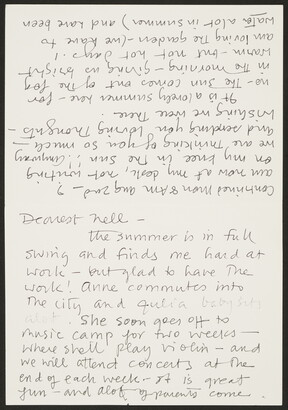 Dearest Nell –
The summer is in full
swing and finds me hard at
work – but glad to have the
work! Anne commutes into
the city and Julia babysits
alot. She soon goes off to
music camp for two weeks –
where she'll play violin – and
we will attend concerts at the
end of each week – it is great
fun – and alot of parents come.
Continued Mon 8 Am. Aug 2nd – ?
am now at my desk, not writing
on my knee in the sun!! Anyway
we are thinking of you so much –
and sending you loving thoughts
Wishing we were there.
It is a lovely summer here – for –
no – the sun comes out of the fog
in the morning – giving us bright
warm – but not hot days!!
am loving the garden – (we have to
water alot in summer) and have been